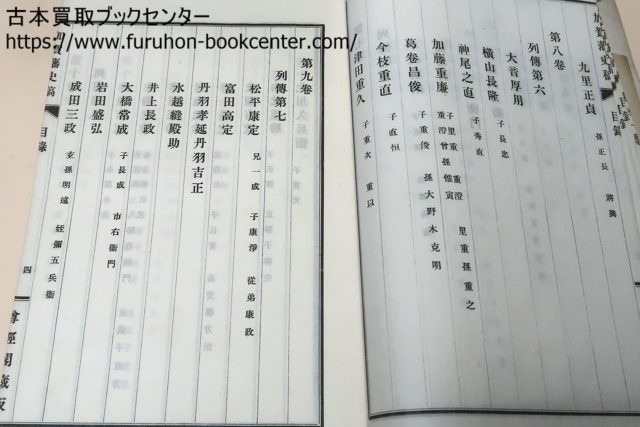 古本買取ブックセンター
https://www.furuhon-bookcenter.com/
目錄
九里正貞 孫正長
第八卷
列傳第六
大音厚用 子長忠
橫山長隆
神尾之直 子秀直
加藤重廉 子里重 重澄 里重孫重之
重澄曾孫惟寅
葛卷昌俊 子重俊 孫大野木克明
今枝重直 子直恒
津田重久 子重次 重以
第九卷
列傳第七
松平康定 兄一成 子康淨 從弟康政
富田高定
丹羽孝延丹羽吉正
水越縫殿助
井上長政
大橋常成 子長成 市右衞門
岩田盛弘
成田三政 玄孫明遠 姪彌五兵衞
藩史稿 目錄 四 尊經閣藏版